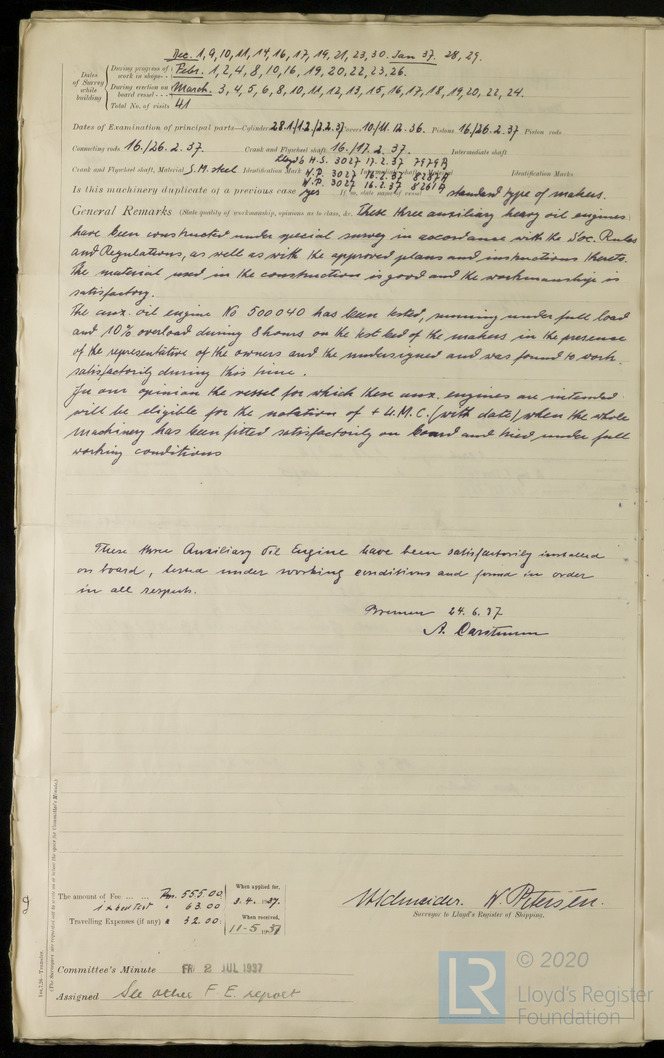 Dec. 1, 9, 10, 11, 14, 16, 17, 19, 21, 23, 30. Jan 37. 28, 29.
Dates of Survey while building
During progress of work in shops - - Febr. 1, 2, 4, 8, 10, 16, 19, 20, 22, 23, 26.
During erection on board vessel - - - March. 3, 4, 5, 6, 8, 10, 11, 12, 13, 15, 16, 17, 18, 19, 20, 22, 24.
Total No. of visits 41
Dates of Examination of principal parts—Cylinders 28.1/1.2./2.2.37 Covers 10/11.12.36. Pistons 16./26.2.37 Piston rods
Connecting rods 16./26.2.37. Crank and Flywheel shaft 16./17.2.37. Intermediate shaft
Lloyd's H.S. 3027 17.2.37 7979B
Crank and Flywheel shaft, Material S.M. steel Identification Mark W.P. 3027 16.2.37 8287A Identification Marks
W.P. 3027 16.2.37 8261A
Is this machinery duplicate of a previous case yes If so, state name of vessel standard type of makers.
General Remarks (State quality of workmanship, opinions as to class, &c. These three auxiliary heavy oil engines
have been constructed under special survey in accordance with the Soc. Rules
and Regulations, as well as with the approved plans and instructions thereto.
The material used in the construction is good and the workmanship is
satisfactory.
The aux. oil engine No 500040 has been tested, running under full load
and 10% overload during 8 hours on the test bed of the makers in the presence
of the representative of the owners and the undersigned and was found to work
satisfactorily during this time.
In our opinion the vessel for which these aux. engines are intended
will be eligible for the notation of + L.M.C. (with date), when the whole
machinery has been fitted satisfactorily on board and tried under full
working conditions
These three Auxiliary Oil Engine have been satisfactorily installed
on board, tested under working conditions and found in order
in all respects.
Bremen 24.6.37
The amount of Fee ... ... Rm. 555.00
1 x bed test " 63.00
Travelling Expenses (if any) " 32.00
When applied for,
3.4.1937.
When received,
11-5 1937
W. Petersen.
Surveyor to Lloyd's Register of Shipping.
Committee's Minute FRI 2 JUL 1937
Assigned See other F.E. report
© 2020
LR
Lloyd's Register
Foundation